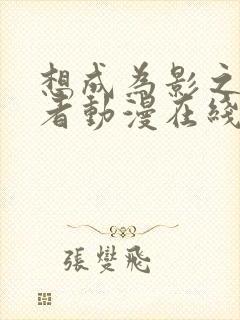 想成為影之
者動漫在綫
張燮飛